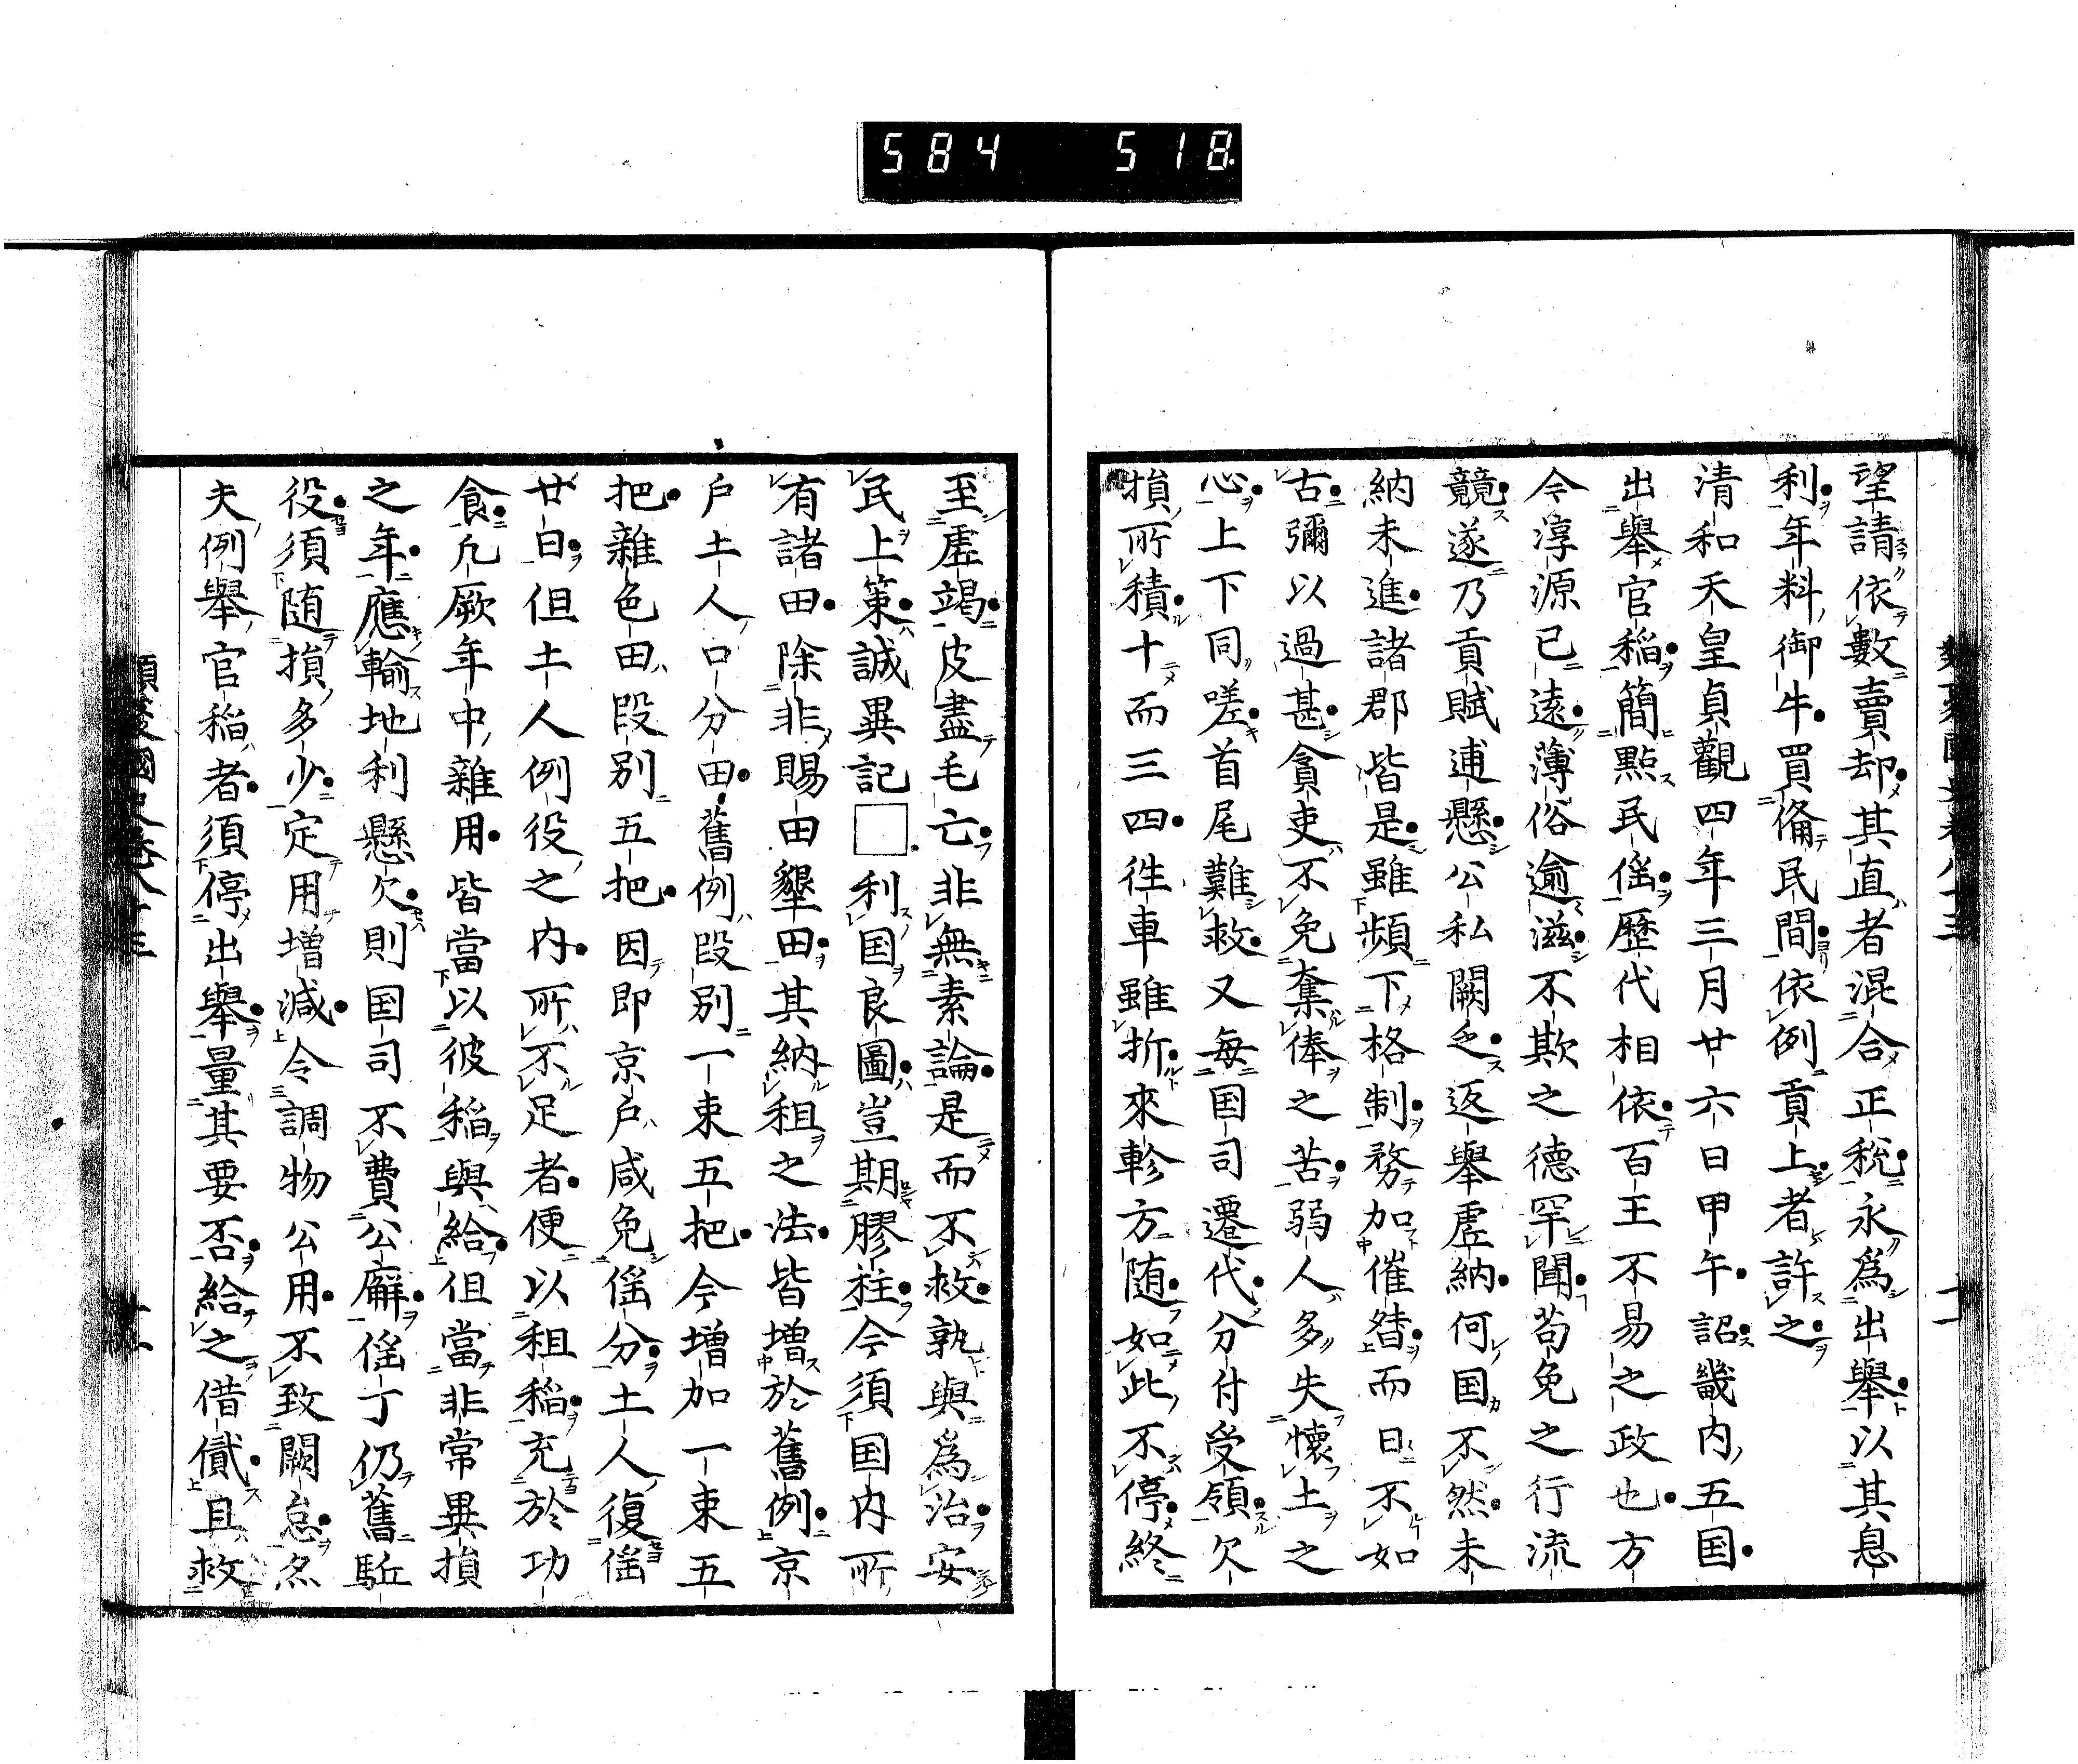 584 518
望請依數賣却其直者混合正税永爲出擧以其息
利年料御牛買俻民間依例貢上者許之
清和天皇貞觀四年三月廿六日甲午詔畿内五国
出擧官稲簡點民徭歴代相依百王不易之政也方
今淳源已遠薄俗逾滋不欺之德罕聞苟免之行流
競遂乃貢賦逋懸公私闕乏返擧虗納何国不然未
納未進諸郡皆是雖頻下格制務加催督而日不如
古彌以過甚貪吏不免奪俸之苦弱人多失懷土之
心上下同嗟首尾難救又每国司遷代分付受領欠
損所積十而三四徃車雖折來軫方随如此不停終
至虗竭皮盡毛亡非無素論是而不救孰與爲治安
民上策誠異記□利国良圖豈期膠柱今須国内所
有諸田除非賜田墾田其納租之法皆増於舊例京
戶土人口分田舊例段別一束五把今增加一束五
把雜色田段別五把因即京戶咸免徭分土人復徭
廿日但土人例役之内所不足者便以租稲充於功
食凢厥年中雜用皆當以彼稲與給但當非常異損
之年應輸地利懸欠則国司不費公廨徭丁仍舊駈
役須随損多少定用増減令調物公用不致闕怠然
夫例擧官稲者須停出擧量其要否給之借貸且救
類聚國史卷八十三